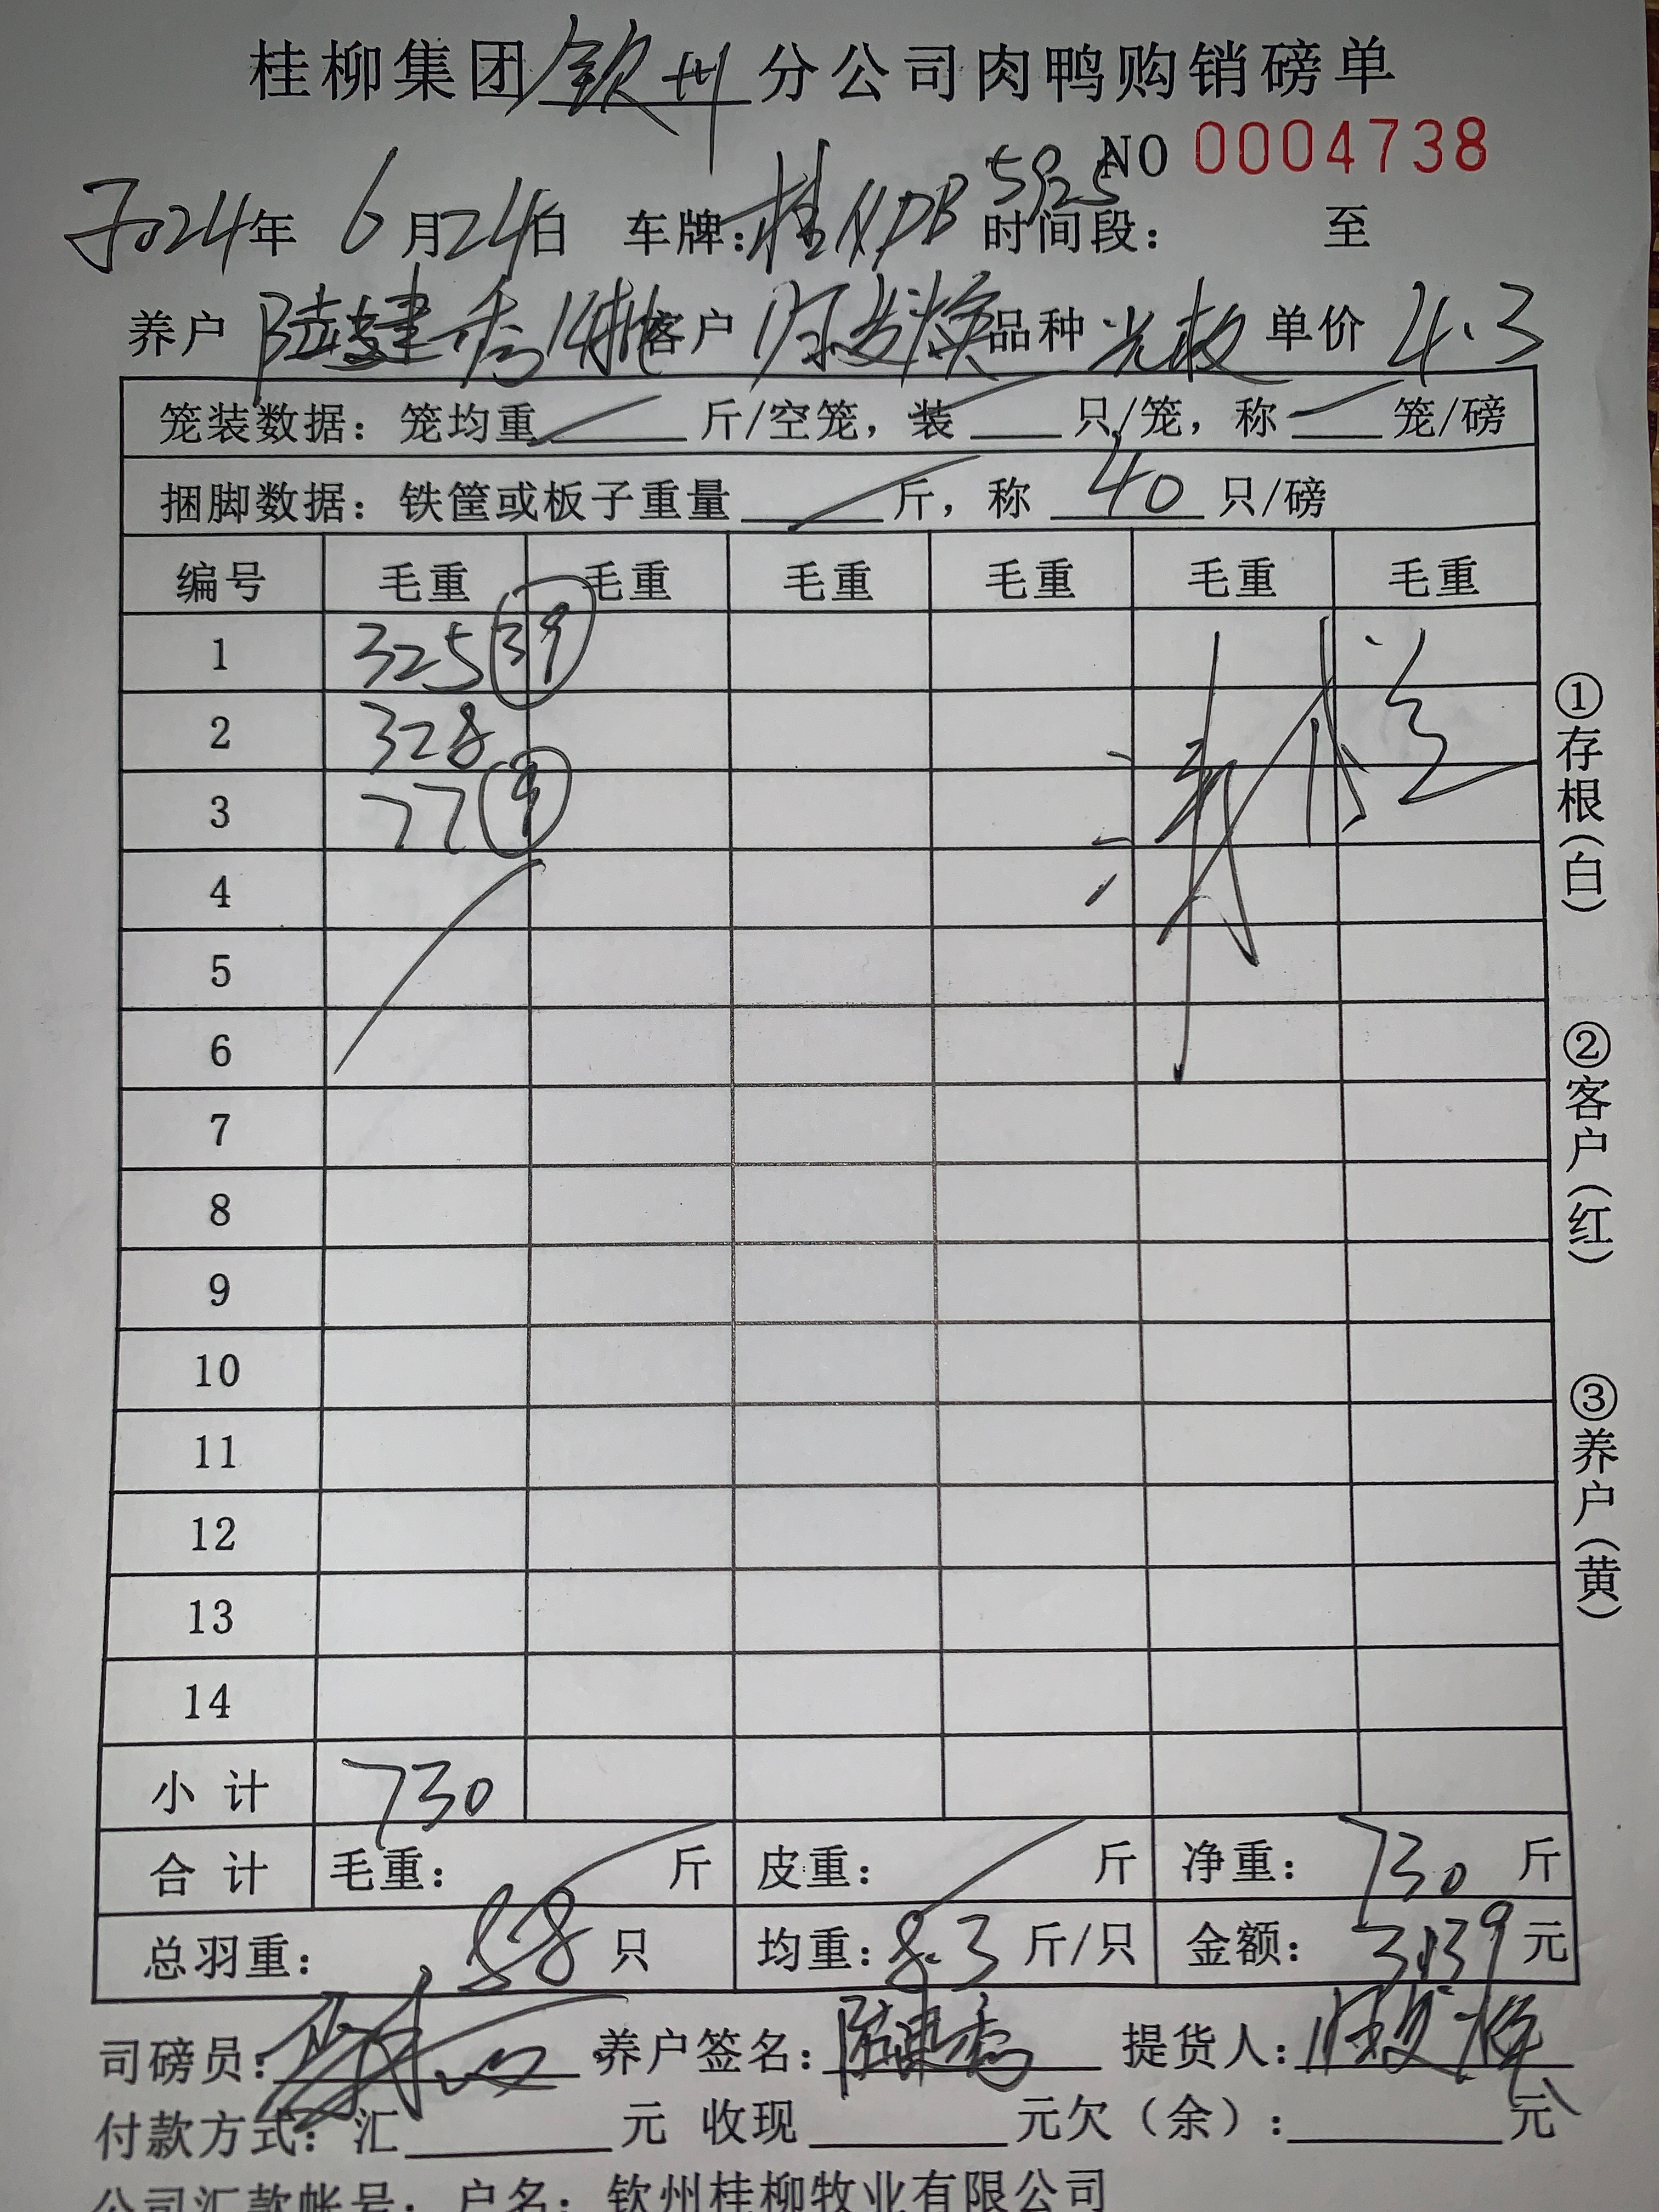 桂柳集团钦州分公司肉鸭购销磅单
NO 0004738
2024年 6月24日 车牌:桂 5925 时间段: 至
养户 陆建秀 客户 品种 光板 单价 4.3
笼装数据: 笼均重 斤/空笼, 装 只/笼, 称 笼/磅
捆脚数据: 铁筐或板子重量 斤, 称 40 只/磅
编号 毛重 毛重 毛重 毛重 毛重 毛重
1 325 39
2 328
3 77 9
4
5
6
7
8
9
10
11
12
13
14
小计 730
合计 毛重: 斤 皮重: 斤 净重: 730 斤
总羽重: 88 只 均重: 8.3 斤/只 金额: 3139 元
司磅员: 养户签名: 陆建秀 提货人:
付款方式: 汇 元 收现 元欠(余): 元
公司汇款帐号: 户名: 钦州桂柳牧业有限公司
①存根(白)
②客户(红)
③养户(黄)